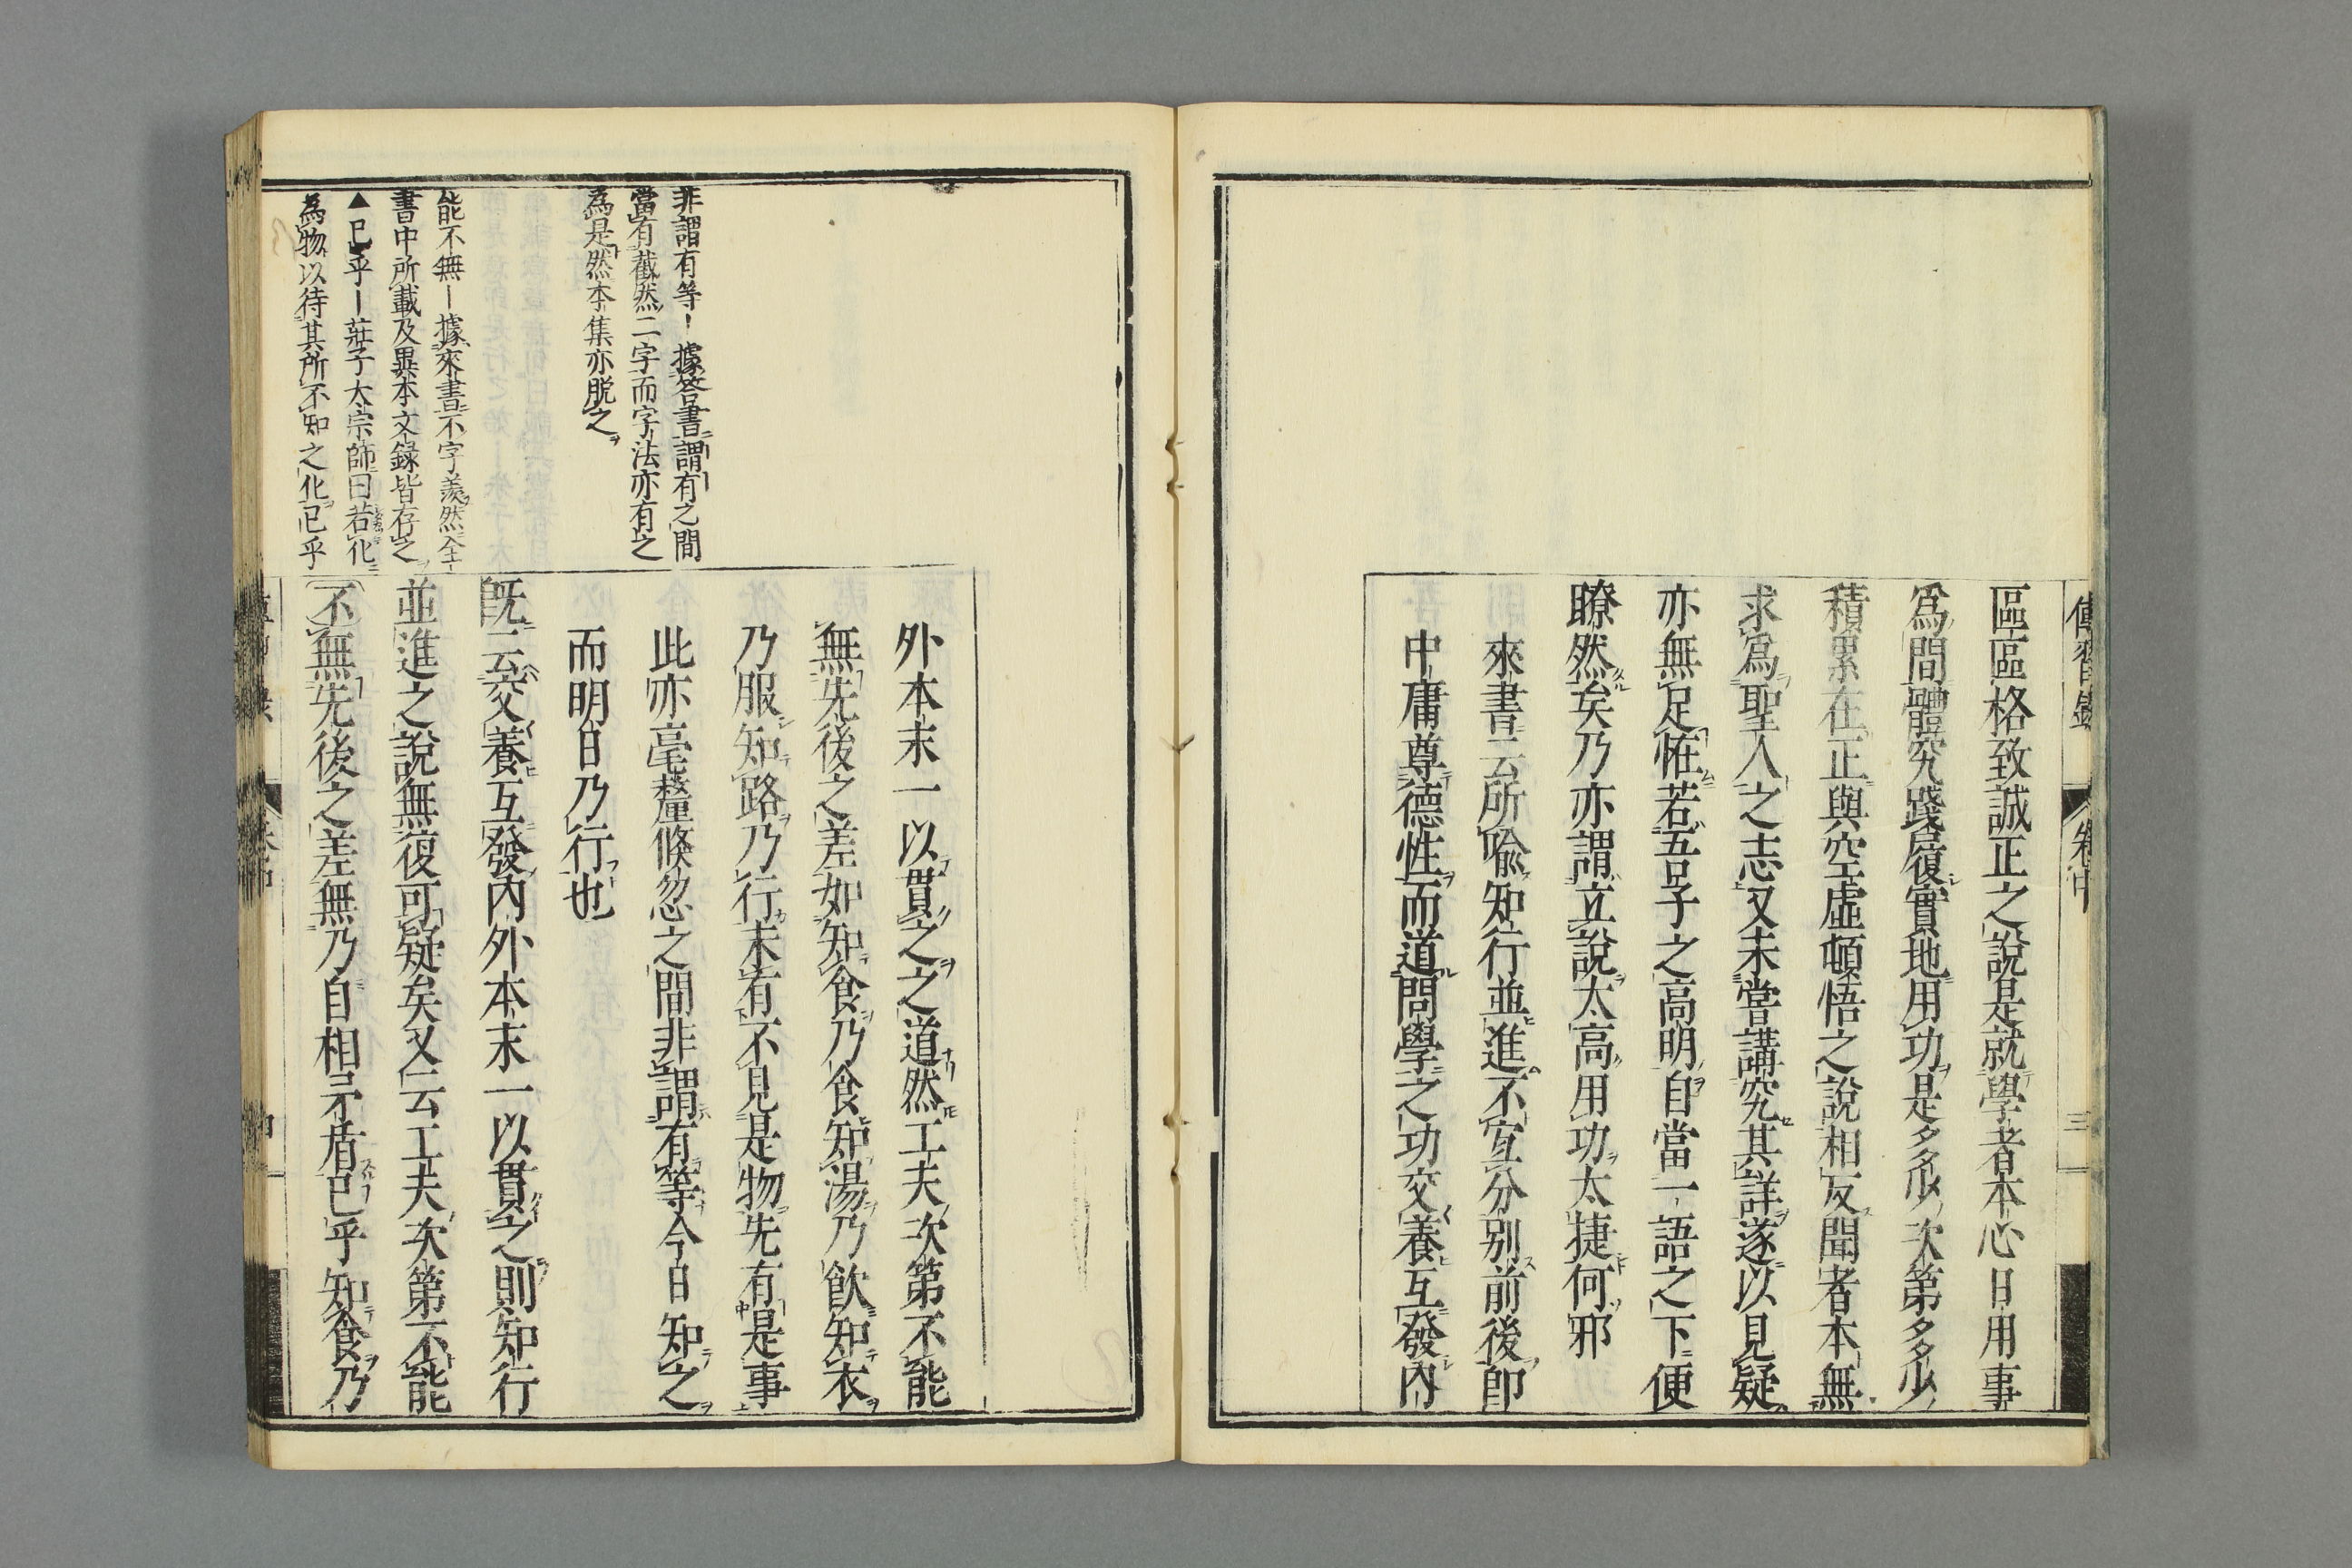 區區格致誠正之說是就學者本心日用事
爲間體究踐履實地用功是多少次第多少
積累在正與空虛頓悟之說相反聞者本無
求爲聖人之志又未嘗講究其詳遂以見疑
亦無足恠若吾子之高明自當一語之下便
瞭然矣乃亦謂立說太高用功太捷何邪
來書云所喩知行並進不宜分別前後卽
中庸尊德性而道問學之功交養互發內
非謂有等一據答書謂有之間
當有截然二字而字法亦有之
為是然本集亦脱之
能不無一據來書不字羨然全
書中所載及異本文錄皆存之
▲已乎一莊子大宗師曰若化
為物以待其所不知之化已乎
外本末一以貫之之道然工夫次第不能
無先後之差如知食乃食知湯乃飮知衣
乃服知路乃行未有不見是物先有是事
此亦毫釐倐忽之間非謂有等今日知之
而明日乃行也
旣云交養互發內外本末一以貫之則知行
並進之說無復可疑矣又云工夫次第不能
不無先後之差無乃自相矛盾已乎知食乃